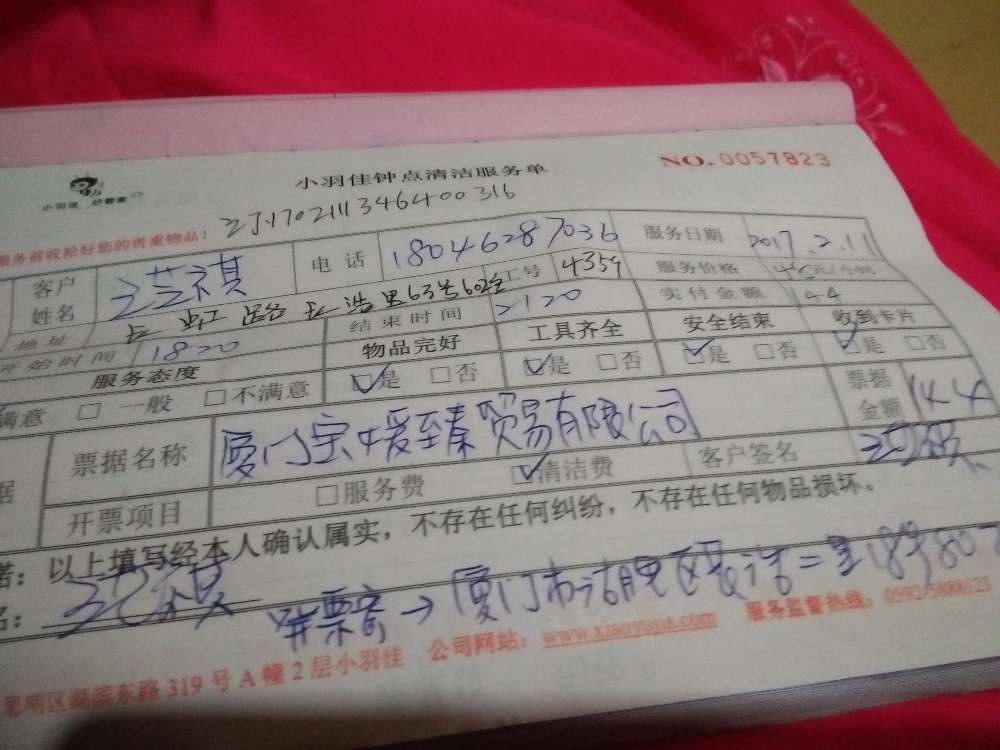 NO.0057823
小羽佳钟点清洁服务单
小羽佳
服务前收拾好您的贵重物品！
客户姓名 电话 18046287036 服务日期 2017.2.11
地址 长虹路长浩里63号602室 工号 4339 服务价格
开始时间 1820 结束时间 2120 实付金额 144
服务态度 物品完好 工具齐全 安全结束 收到卡片
满意 □ 一般 □ 不满意 ☑是 □否 ☑是 □否 ☑是 □否 ☑是 □否
票据名称 厦门宝暖至臻贸易有限公司 票据金额 144
开票项目 □服务费 ☑清洁费 客户签名
诺：以上填写经本人确认属实，不存在任何纠纷，不存在任何物品损坏。
名：
票寄→厦门市湖里区
昆明区湖滨东路319号A幢2层小羽佳 公司网站：www.xiaoyujia.com 服务监督热线：0592-5886123